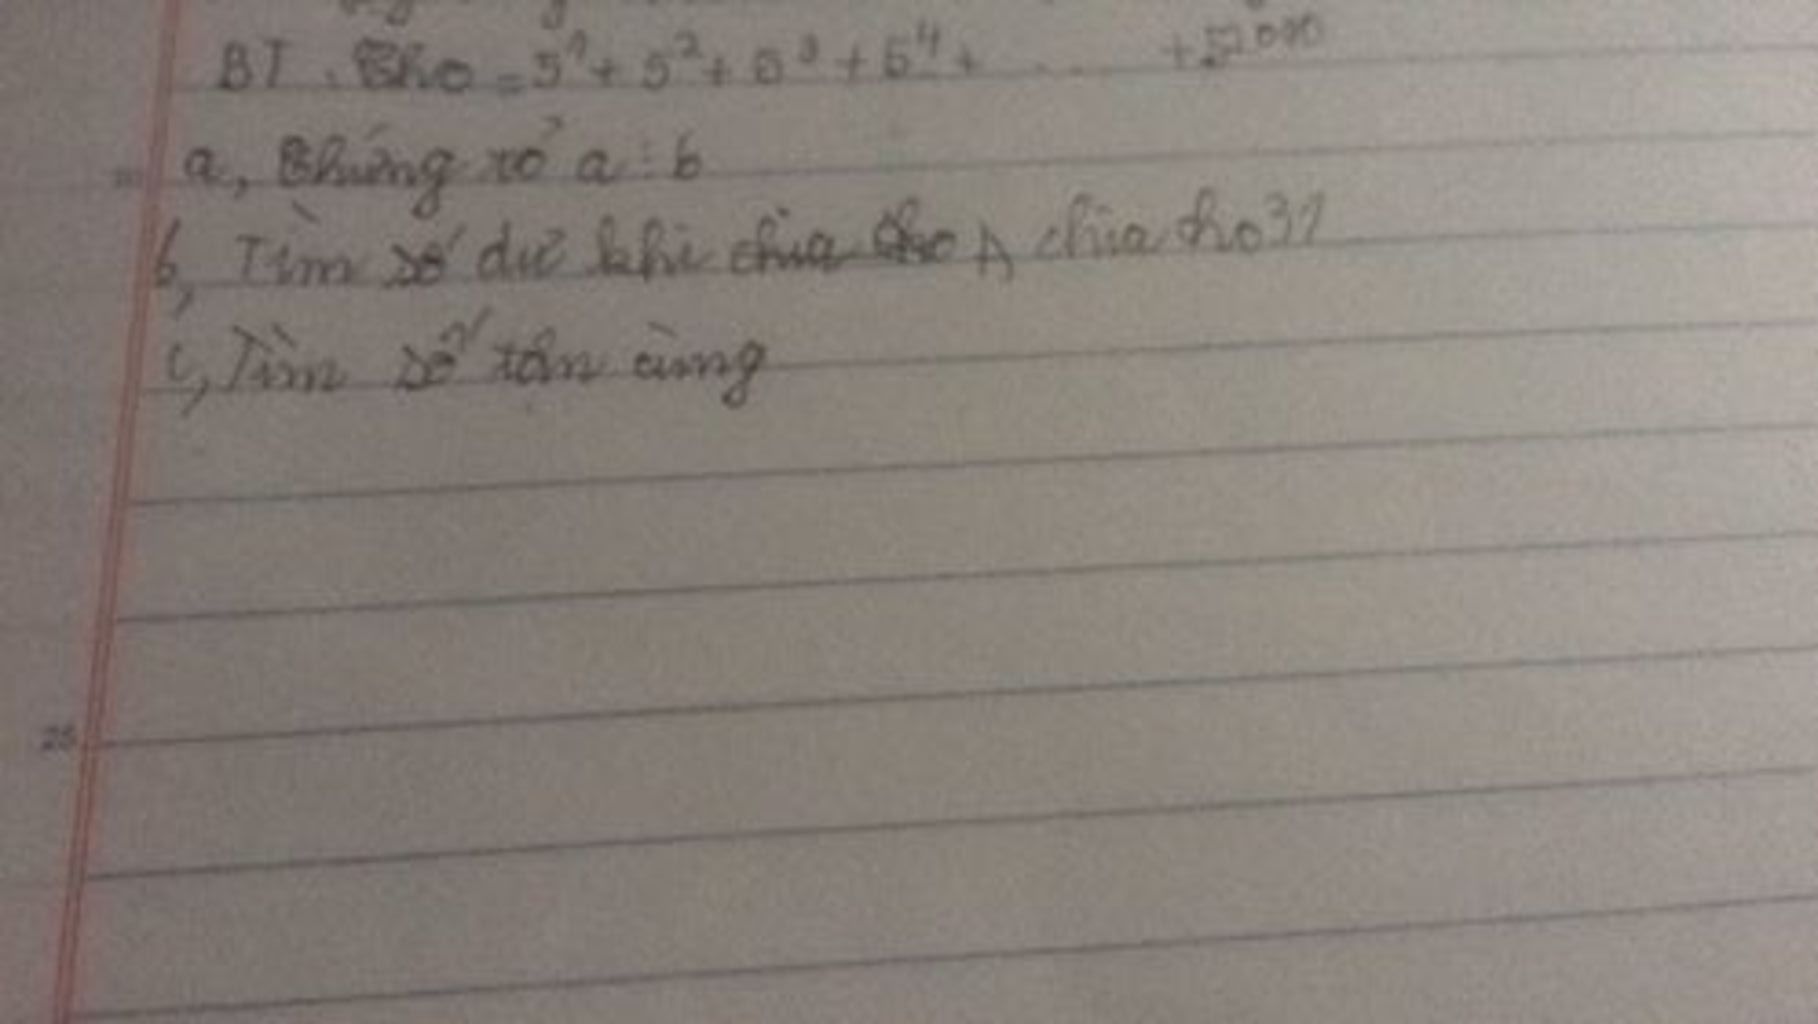 BT. Cho = 5¹ + 5² + 5³ + 5⁴ + ... + 5²⁰¹⁰
a, Chứng tỏ a ⋮ b
b, Tìm số dư khi chia cho A chia cho 31
c, Tìm số tận cùng
25